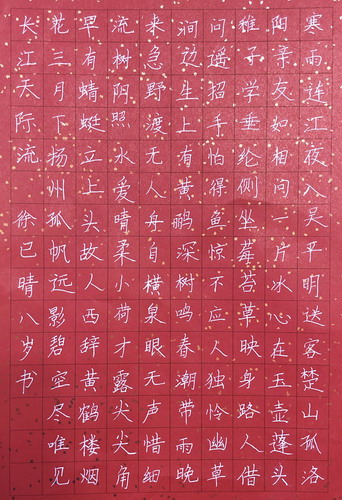 寒雨连江夜入吴平明送客楚山孤洛
阳亲友如相问一片冰心在玉壶蓬头
稚子学垂纶侧坐莓苔草映身路人借
问遥招手怕得鱼惊不应人独怜幽草
涧边生上有黄鹂深树鸣春潮带雨晚
来急野渡无人舟自横泉眼无声惜细
流树阴照水爱晴柔小荷才露尖尖角
早有蜻蜓立上头故人西辞黄鹤楼烟
花三月下扬州孤帆远影碧空尽唯见
长江天际流 徐已晴八岁书